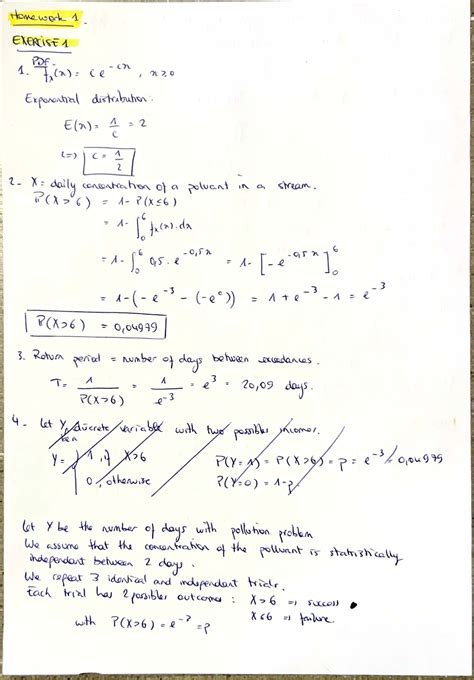 Homework 1.
EXERCISE 1
PDF
1. fx(x) = c e^-cx , x≥0
Exponential distribution:
E(x) = 1/c = 2
<=> c = 1/2
2- X = daily concentration of a poluant in a stream.
P(X>6) = 1- P(X≤6)
= 1- ∫_0^6 fx(x).dx
= 1- ∫_0^6 0,5. e^-0,5x = 1- [-e^-0,5x]_0^6
= 1-(-e^-3 - (-e^0)) = 1+e^-3 -1 = e^-3
P(X>6) = 0,04979
3. Return period = number of days between exceedances.
T= 1/P(X>6) = 1/e^-3 = e^3 = 20,09 days.
4- let Y, discrete variable with two possible
Y= 1, if X>6 P(Y=1) = P(X>6) = p = e^-3 = 0,04979
0, otherwise P(Y=0) = 1-p
let Y be the number of days with pollution problem
We assume that the concentration of the polluant is statistically
independent between 2 days.
We repeat 3 identical and independent trials.
Each trial has 2 possible outcomes : X>6 => success
X≤6 => failure
with P(X>6) = e^-3 = p